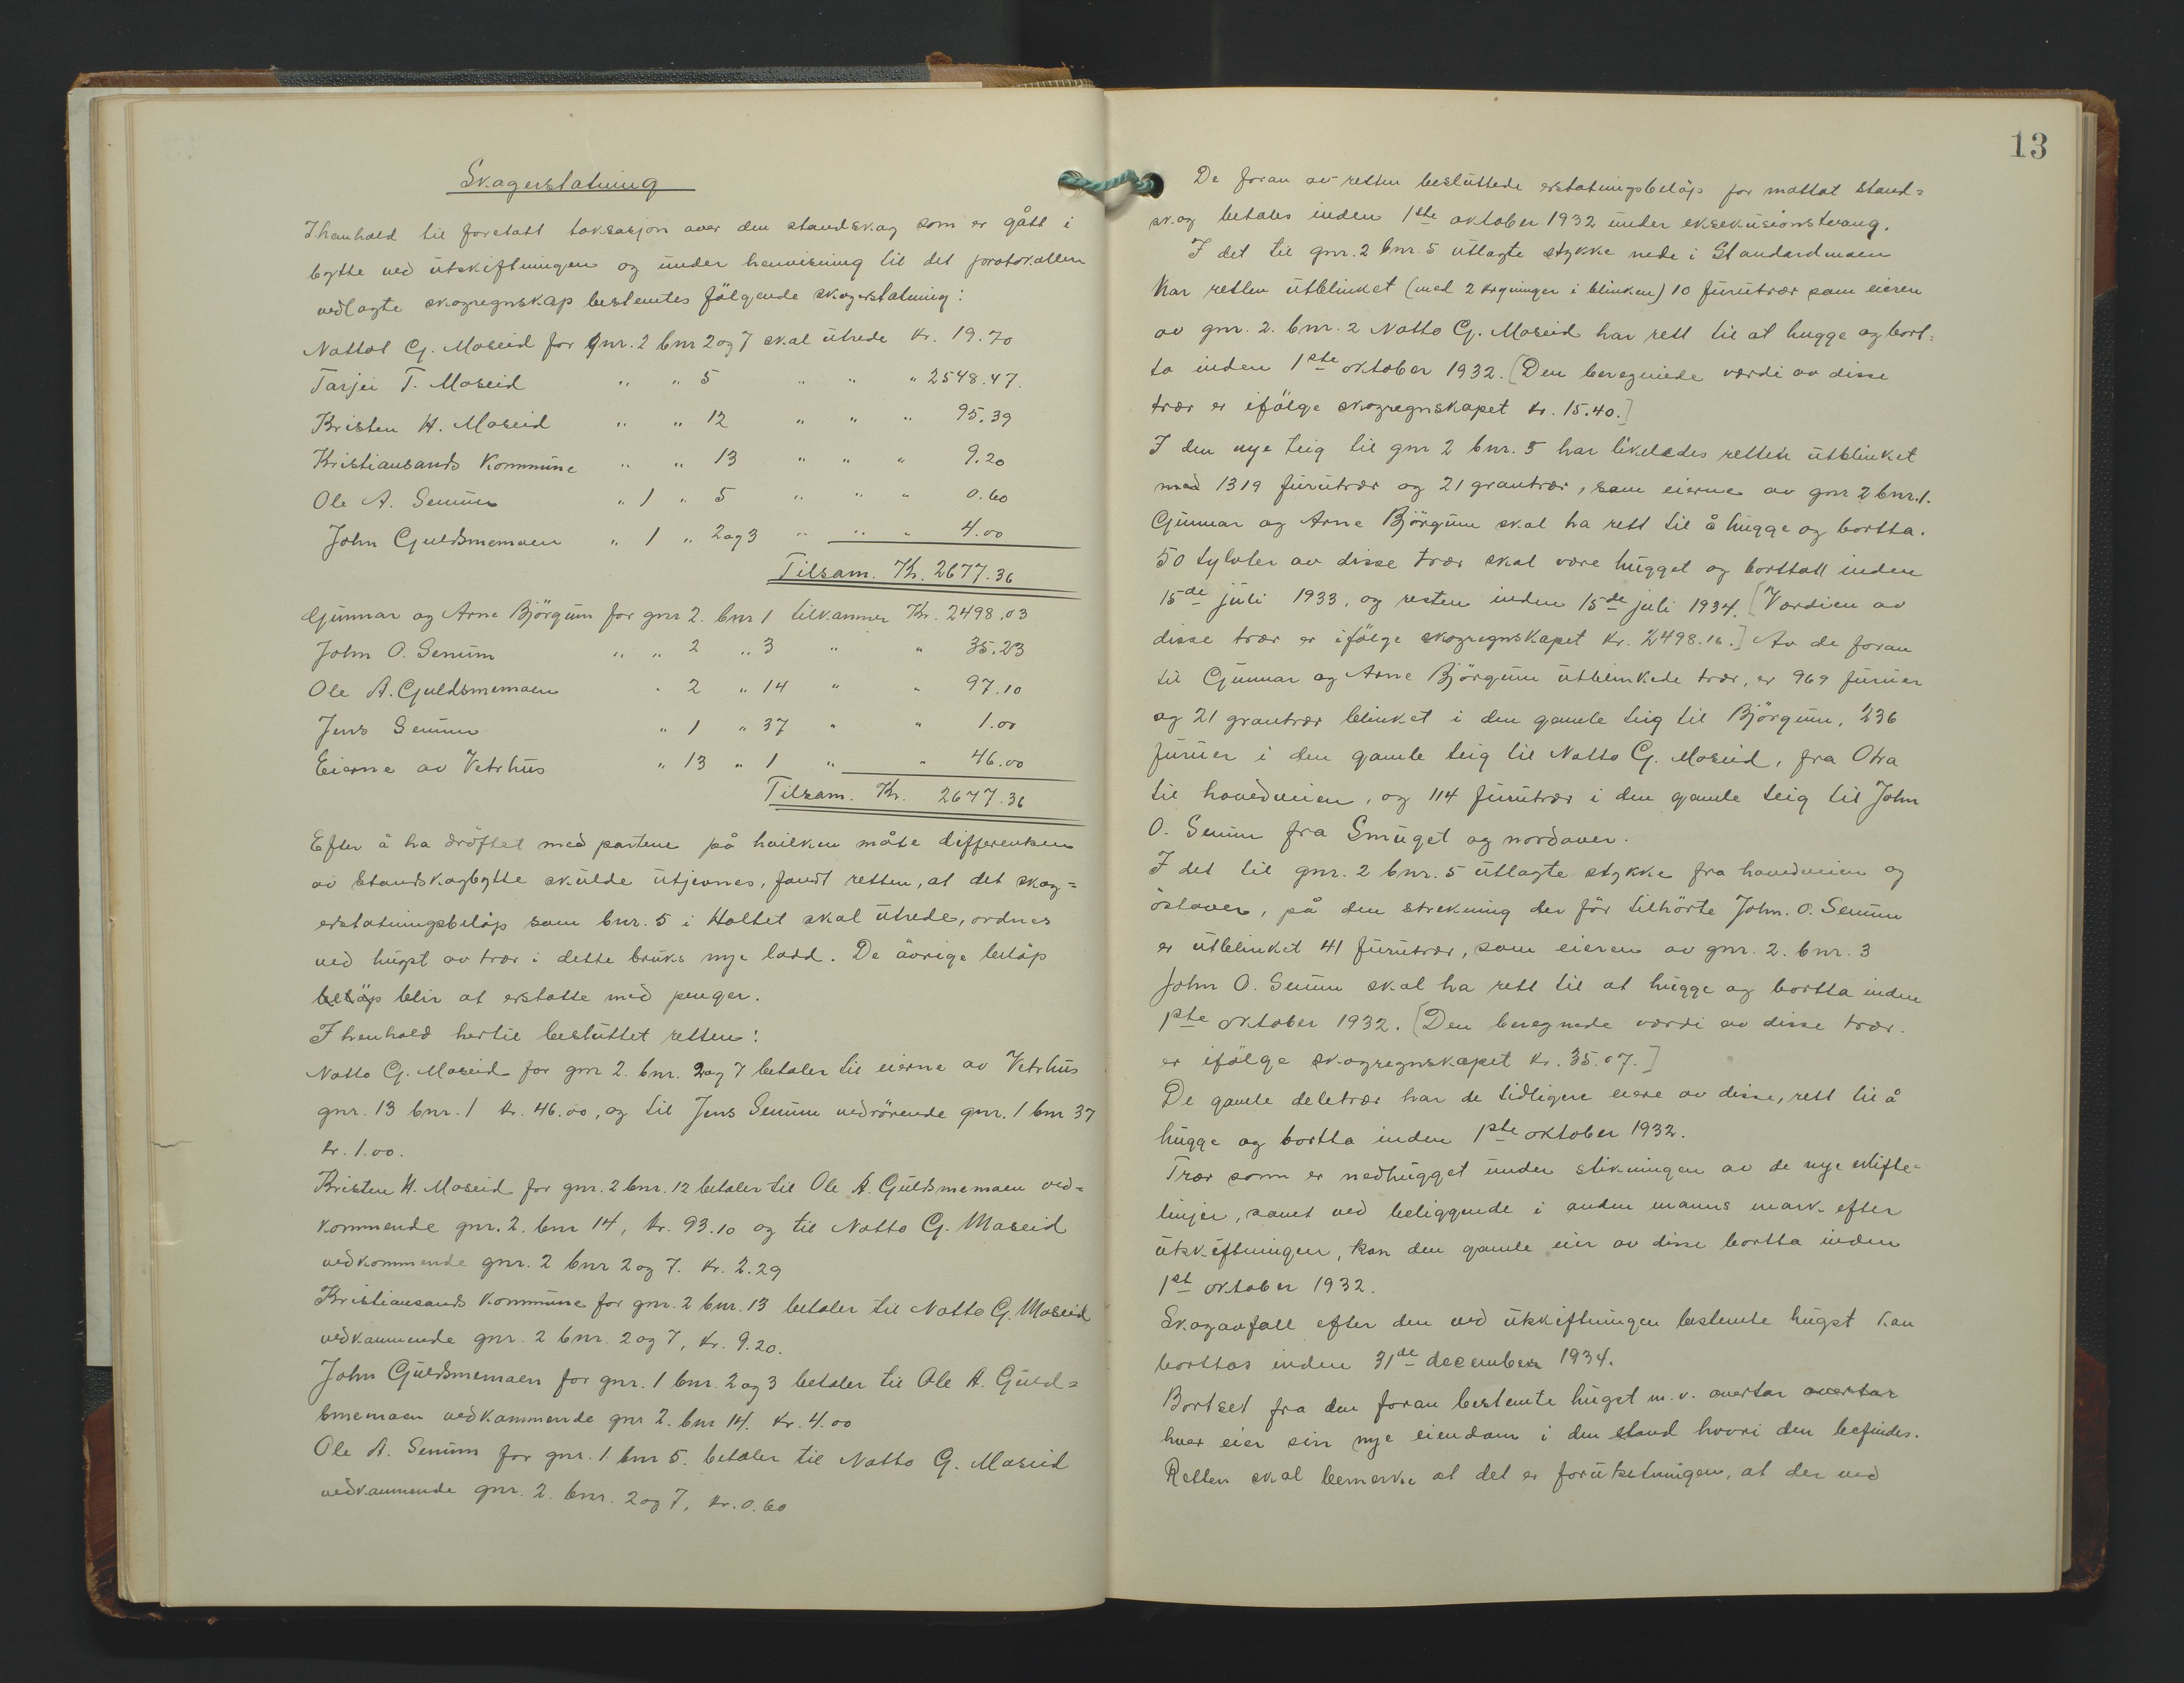 Skogerstatning
Ihenhold til foretatt taksasjon over den standskog som er gått i
bytte ved utskiftningen og under henvisning til det protokollen
vedlagte skogregnskap bestemtes følgende skogerstatning:
Nattat G. Moseid for gnr. 2 bnr 2 og 7 skal utrede Kr. 19.70
Tarjei T. Moseid " " 5 " " " 2548.47.
Kristen H. Moseid " " 12 " " " 95.39
Kristiansands Kommune " " 13 " " " 9.20
Ole A. Senum " 1 " 5 " " " 0.60
John Guldsmemoen " 1 " 2 og 3 " " " 4.00
Tilsam. Kr. 2677.36
Gunnar og Arne Bjørgum for gnr 2. bnr 1 tilkommer Kr. 2498.03
John O. Senum " " 2 " 3 " " 35.23
Ole A. Guldsmemoen " 2 " 14 " " 97.10
Jens Senum " 1 " 37 " " 1.00
Eierne av Vetrhus " 13 " 1 " " 46.00
Tilsam. Kr. 2677.36
Efter å ha drøftet med partene på hvilken måte differensen
av standskogbytte skulde utjevnes, fandt retten, at det skog=
erstatningsbeløp som bnr. 5 i Holtet skal utrede, ordnes
ved hugst av trær i dette bruks nye lodd. De øvrige beløp
beløp blir at erstatte med penger.
I henhold hertil besluttet retten:
Natto G. Moseid for gnr 2. bnr. 2 og 7 betaler til eierne av Vetrhus
gnr. 13 bnr. 1 kr. 46.00, og til Jens Senum vedrørende gnr. 1 bnr 37
kr. 1.00.
Kristen H. Moseid for gnr. 2 bnr. 12 betaler til Ole A. Guldsmemoen ved=
kommende gnr. 2. bnr 14, kr. 93.10 og til Natto G. Moseid
vedkommende gnr. 2 bnr 2 og 7. kr. 2.29
Kristiansands Kommune for gnr. 2 bnr. 13 betaler til Natto G. Moseid
vedkommende gnr. 2 bnr. 2 og 7, kr. 9.20.
John Guldsmemoen for gnr. 1 bnr. 2 og 3 betaler til Ole A. Guld=
smemoen vedkommende gnr 2. bnr 14. kr. 4.00
Ole A. Senum for gnr. 1. bnr 5. betaler til Natto G. Moseid
vedkommende gnr. 2. bnr. 2 og 7, kr. 0.60
13
De foran av retten besluttede erstatningsbeløp for mottat stand=
skog betales inden 1ste oktober 1932 under eksekusionstvang.
I det til gnr. 2 bnr. 5 utlagte stykke nede i Standardmoen
har retten utblinket (med 2 krymninger i blinken) 10 furutrær som eieren
av gnr. 2. bnr. 2 Natto G. Moseid har rett til at hugge og bort=
ta inden 1ste oktober 1932. [Den beregnede værdi av disse
trær er ifølge skogregnskapet kr. 15.40.]
I den nye teig til gnr 2 bnr. 5 har likeledes retten utblinket
med 1319 furutrær og 21 grantrær, som eierne av gnr 2 bnr. 1.
Gunnar og Arne Bjørgum skal ha rett til å hugge og bortta.
50 tylvter av disse trær skal være hugget og borttatt inden
15de juli 1933, og resten inden 15de juli 1934. [Værdien av
disse trær er ifølge skogregnskapet kr. 2498.16.] Av de foran
til Gunnar og Arne Bjørgum utblinkede trær, er 969 furuer
og 21 grantrær blinket i den gamle teig til Bjørgum, 236
furuer i den gamle teig til Natto G. Moseid, fra Otra
til hovedveien, og 114 furutrær i den gamle teig til John
O. Senum fra Smuget og nordover.
I det til gnr. 2 bnr. 5 utlagte stykke fra hovedveien og
østover, på den strekning der før tilhørte John. O. Senum
er utblinket 41 furutrær, som eieren av gnr. 2. bnr. 3
John O. Senum skal ha rett til at hugge og bortta inden
1ste oktober 1932. [Den beregnede værdi av disse trær.
er ifølge skogregnskapet kr. 35.07.]
De gamle deletrær har de tidligere eiere av disse, rett til å
hugge og bortta inden 1ste oktober 1932.
Trær som er nedhugget under stikningen av de nye skifte=
linjer, samt ved beliggende i anden manns mark efter
utskiftningen, kan den gamle eier av disse bortta inden
1st oktober 1932.
Skogavfall efter den ved utskiftningen bestemte hugst kan
borttas inden 31de december 1934.
Bortset fra den foran bestemte hugst m.v. overtar overtar
hver eier sin nye eiendom i den stand hvori den befindes.
Retten skal bemerke at det er forutsetningen, at der ved